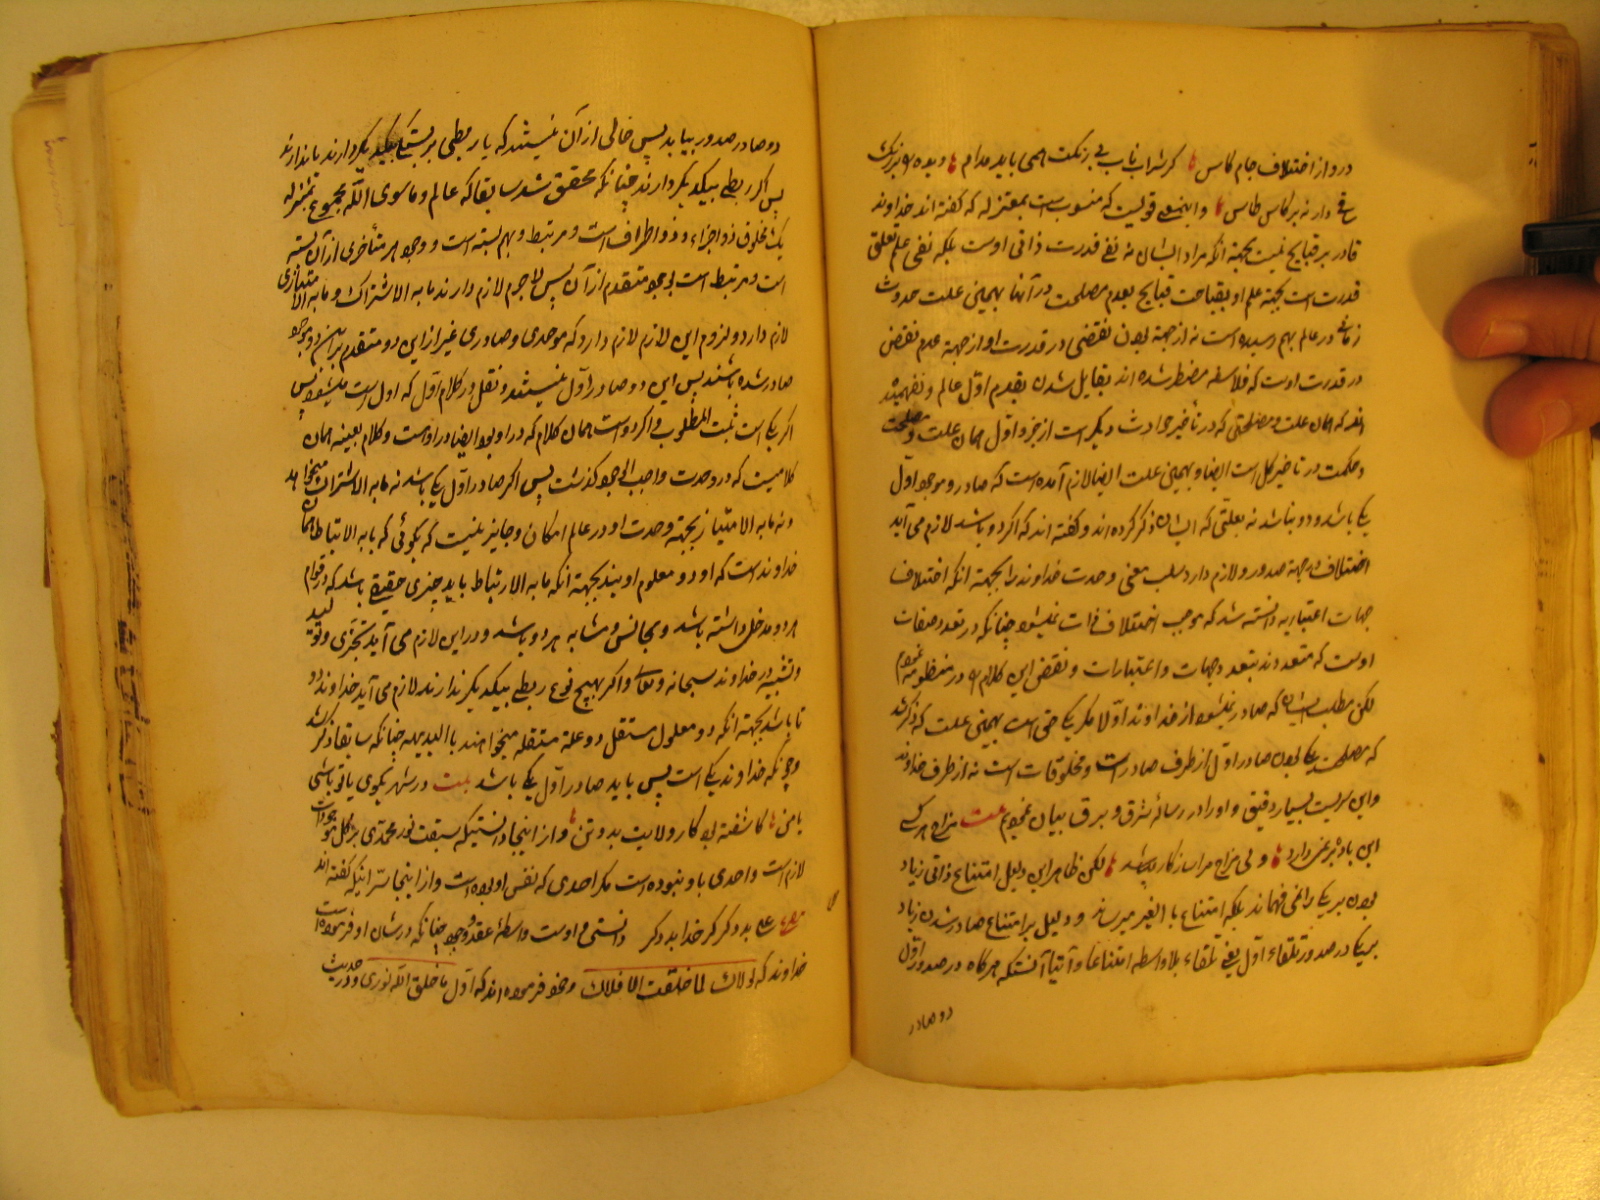 درد از اختلاف جام کاس کر شراب ناب بی رنکت همی باید مدام و بده
دارنه بر کاس طاس و این معنی قولیست که منسوب است بمعتزله که کفته اند خداوند
قادر بر قبایح نیست بجهة آنکه مراد ایشان نه نفی قدرت ذاتی اوست بلکه نفی علم تعلق
قدرت است بجهة علم او بقباحت قبایح بعدم مصلحت در آنها بهمین علت حدوث
زمانی در عالم بهم رسیده است نه از جهة بودن نقضی در قدرت او از جهة عدم نقض
در قدرت اوست که فلاسفه مضطر شده اند بقایل شدن بقدم اول عالم و نفهمیده
اند که همان علت و مصلحتی که در تأخیر حوادث دیکر است از جزو اول همان علت و مصلحت
و حکمت در تاخیر کل است ایضا و بهمین علت ایضا لازم آمده است که صادر و موجود اول
یکی باشد و دو نباشد نه بعلتی که ایشان ذکر کرده اند و کفته اند که اکر دو باشد لازم می آید
اختلاف در جهة صدور و لازم دارد سلب معنی وحدت خداوند را بجهة آنکه اختلاف
جهات اعتباریه دانسته شد که موجب اختلاف ذات نمیشود چنانکه در تعدد صفات
اوست که متعددند بتعدد جهات و اعتبارات و نقض این کلام در منظومه
لکن مطلب ایشان که صادر نمیشود از خداوند اولا مکر یکی حق است بهمین علت که ذکر شد
که مصلحت یکی بودن صادر اول از طرف صادر است و مخلوقات است نه از طرف خداوند
و این سریست بسیار دقیق و او را در رساله شرق و برق بیان نموده‌ام بیت نه هر کسی
این باده بر نمی دارد و نی مراد مرا سازکار لکن ظاهر این دلیل امتناع ذاتی زیاد
بودن بر یکی را نمی فهماند بلکه امتناع با الغیر میرساند و دلیل بر امتناع صادر شدن زیاد
بر یکی در صدور تلقاء اول یعنی تلقاء بلا واسطه امتناعا و آتیا آنستکه هرکاه در صدور اول
دو صادر
دو صادر صدور بیابد پس خالی از آن نیستند که یا ربطی و بستکی بیکدیکر دارند یا ندارند
پس اکر ربطی بیکدیکر دارند چنانکه محقق شد سابقا که عالم و ما سوی الله بمجموع بمنزله
یک مخلوق ذو اجزاء و ذو اطراف است و مرتبط و بهم بسته است و وجود هر متأخری از آن بسته
است و مرتبط است بوجود متقدم از آن پس لاجرم لازم دارند ما به الاشتراک و ما به الامتیازی
لازم دارد و لزوم این لازم لازم دارد که موجدی و صادری غیر از این دو متقدم بر این دو موجود
صادر شده باشند پس این دو صادر اول نیستند و نقل در کلام اول که اول است میشود پس
اکر یکی است ثبت المطلوب و اکر دو است همان کلام که در او بود ایضا در او است و کلام بعینه همان
کلامیست که در وحدت واجب الوجود کذشت پس اکر صادر اول یکی باشد نه ما به الاشتراک میخواهد
و نه ما به الامتیاز بجهة وحدت او در عالم امکان و جایز نیست که بکوئی که ما به الارتباط همان
خداوند است که او دو معلوم اویند بجهة آنکه ما به الارتباط باید چیزی حقیقی باشد که در قوام
هر دو مدخل داشته باشد و مجانس و مشابه هر دو باشد و در این لازم می آید تجزی و تولید
و تشبیه در خداوند سبحانه و تعالی و اکر بهیچ نوع ربطی بیکدیکر ندارند لازم می آید خداوند دو
تا باشد بجهة آنکه دو معلول مستقل دو علة مستقله میخواهند با البدیهه چنانکه سابقا ذکر شد
و چونکه خداوند یکی است پس باید صادر اول یکی باشد بیت در شهر بکوی یا تو باشی
یا من کاشفته بود کار ولایت بدو تن و از اینجا دانستیکه سبقت نور محمدی بر کل موجودات
لازم است و احدی با او نبوده است مکر احدی که نفس او بوده است و از اینجاست اینکه کفته اند
علی بد و کر کر خدا بد و کر دانستی و اوست واسطه عقد وجود چنانکه در شان او فرموده است
خداوند که لولاک لما خلقت الافلاک و خود فرموده اند که اول ما خلق الله نوری و در حدیث